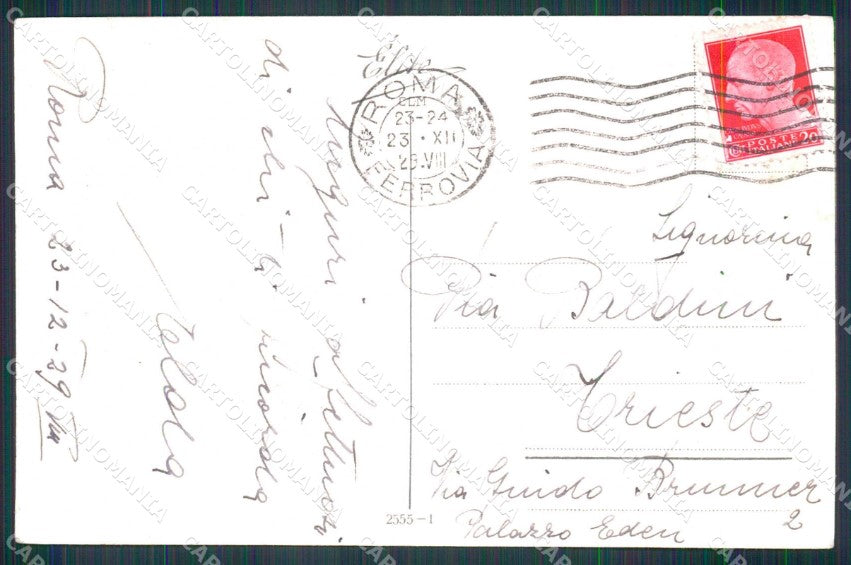 Roma 23-12-29 VIII
Auguri affettuosi
di chi ti ricorda
ROMA FERROVIA
23-24
23 · XII
29.VIII
POSTE
ITALIANE 20
Signorina
Pia Baldini
Trieste
Via Guido Brunner
2
Palazzo Eden
2555-1
CARTOLINOMANIA